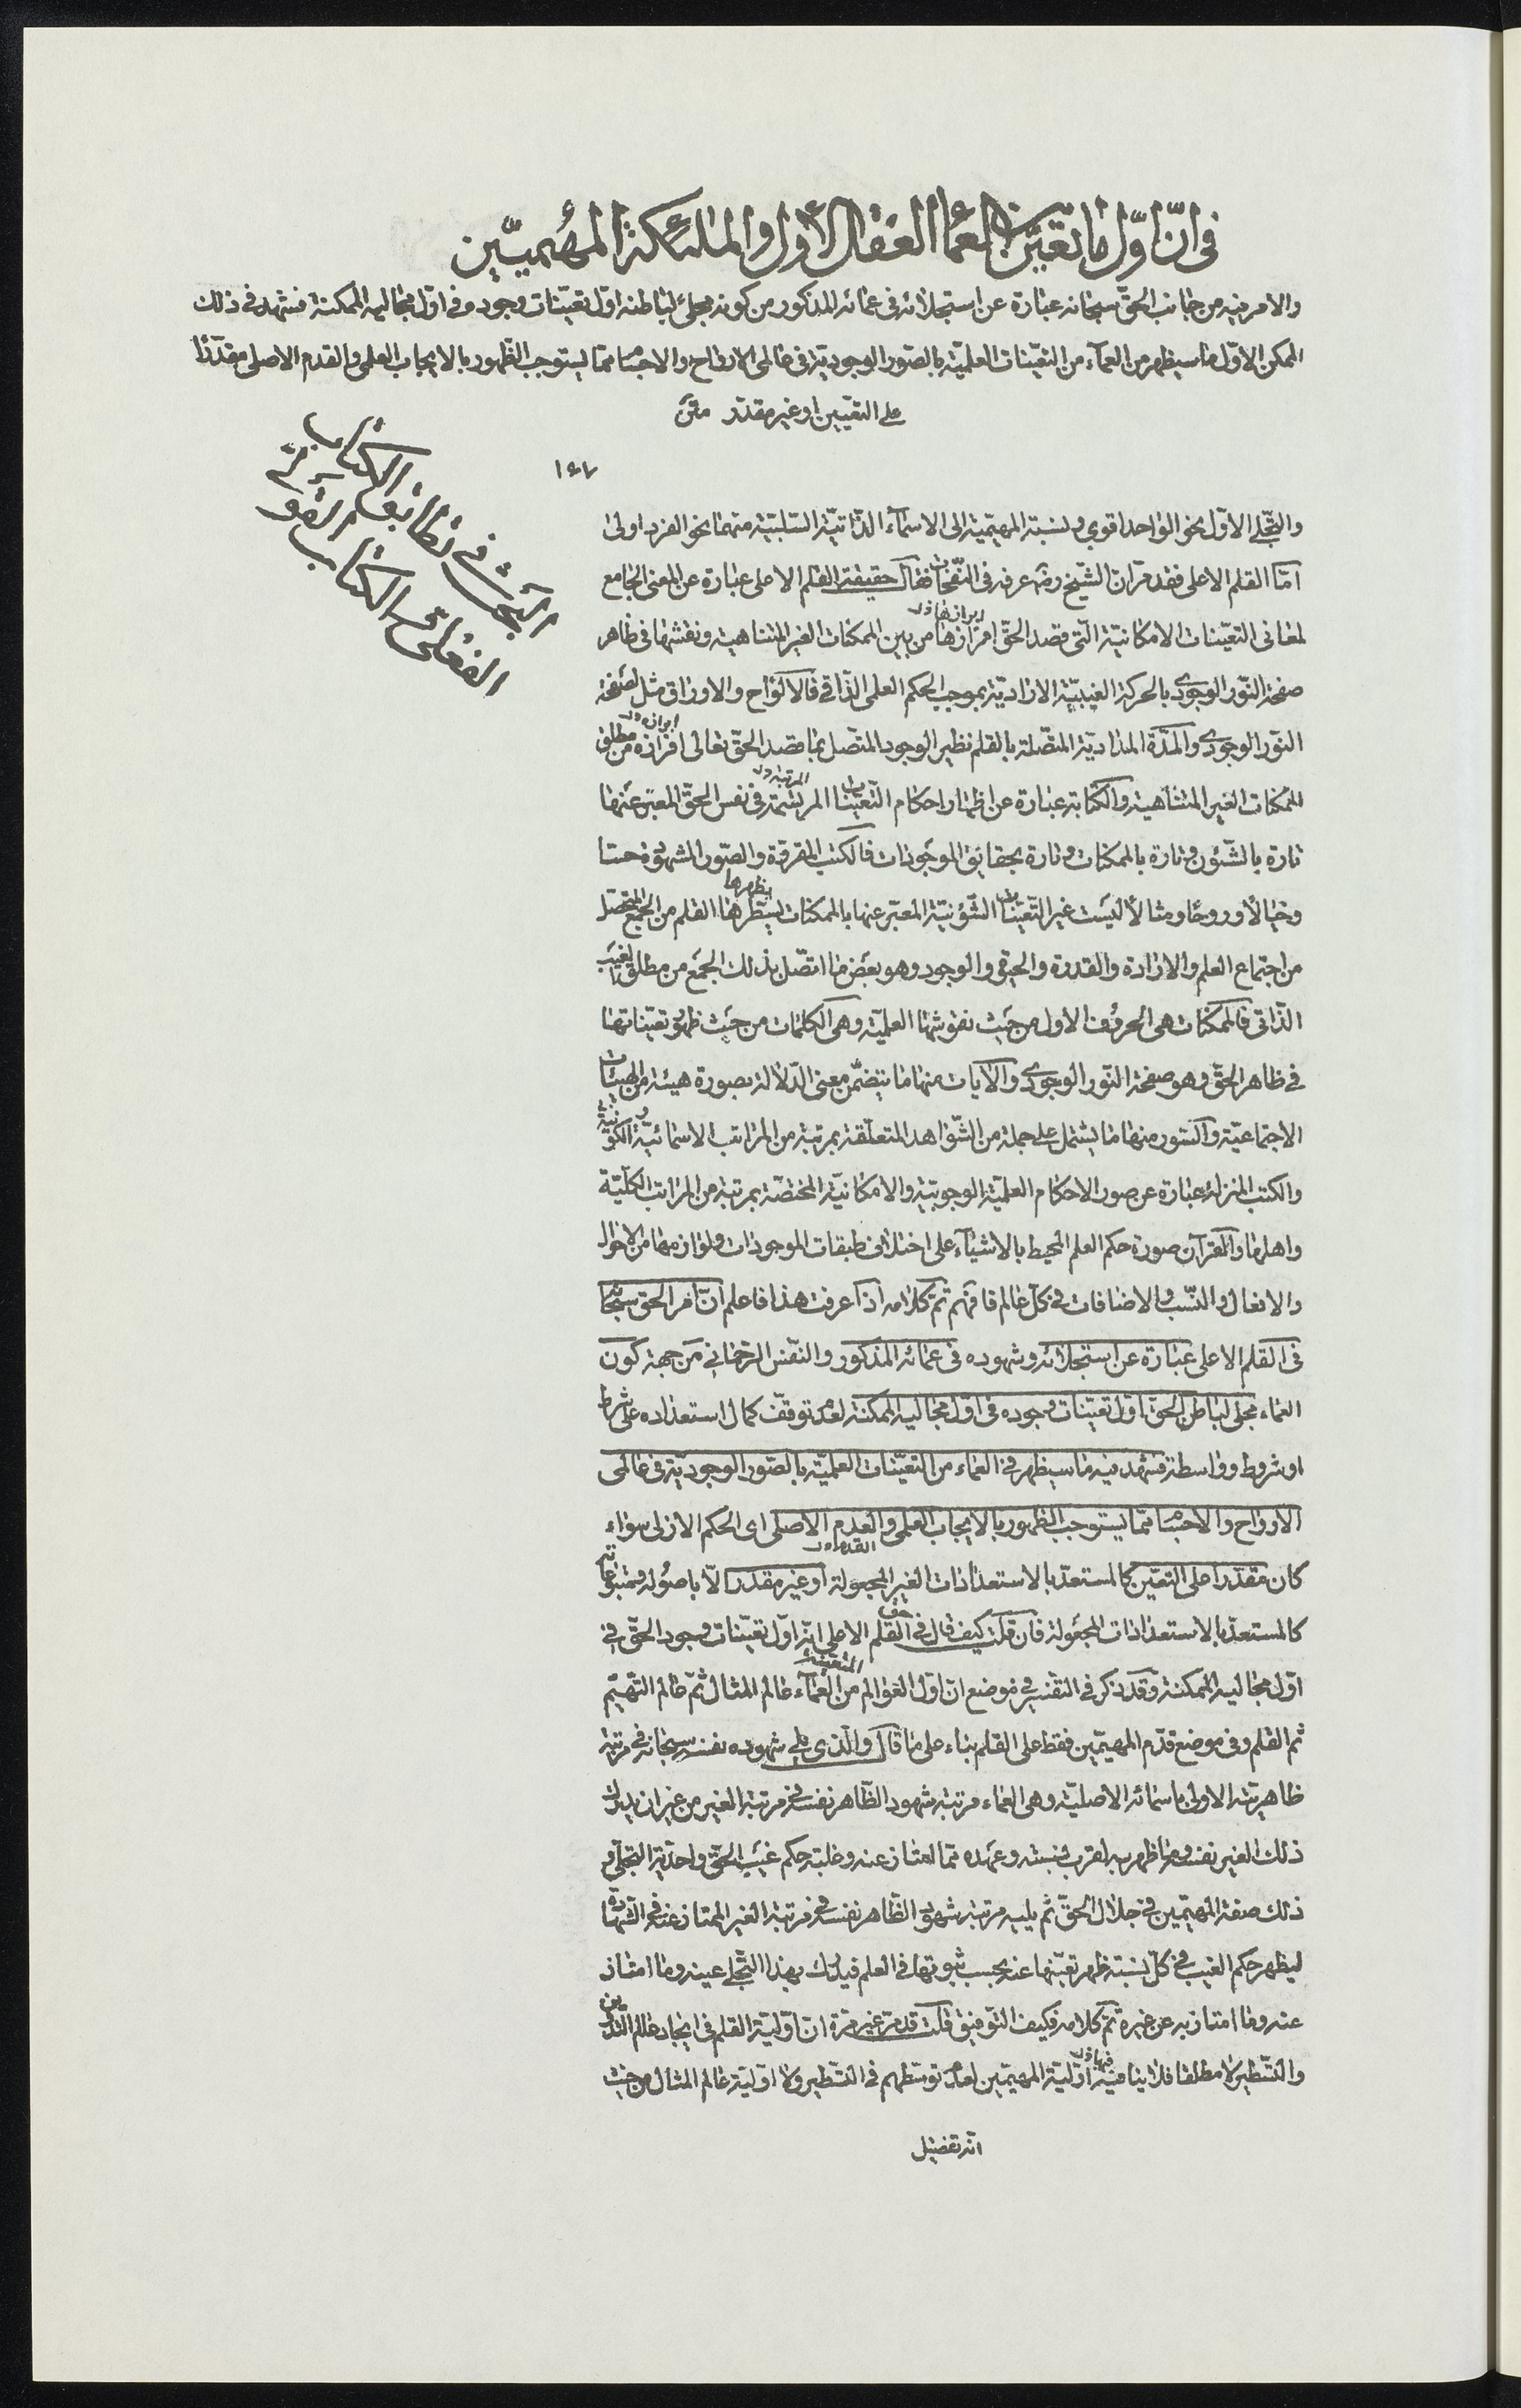 في انّ اوّل ما تعيّن من العما العقل الأول والملئكة المهُميّين
والامر فيه من جانب الحقّ سبحانه عبارة عن استجلائه فى عمائه المذكور من كونه مجلىً لباطنه اوّل تعيّنات وجوده فى اوّل مجاليه الممكنة فشهد فى ذلك
الممكن الاوّل ما سيظهر من العمآء من التعيّنات العلميّة بالصّور الوجوديّة فى عالمى الارواح والاجسام ممّا يستوجب الظّهور بالايجاب العلمى والقدم الاصلى مقدّرًا
على التعيين او غير مقدّر متن
١٤٧
البحث فى تطابق الكتاب
الفعلىّ الكتاب
والتّجلى الاوّل بخو الواحد اقوي ونسبة المهيّمية الى الاسمآء الذّاتيّة السّلبيّة منهما بخو الفرد اولى
امّا القلم الاعلى فقد مرّ ان الشّيخ رضه عرفه فى النّفحات فقال حقيقة القلم الاعلى عبارة عن المعنى الجامع
لمعانى التعيّنات الامكانيّة الّتى قصد الحقّ افرازها من بين الممكنات الغير المتناهية ونقشها فى ظاهر
ابرازها خ ل
صفحة النّور الوجودى بالحركة الغيبيّة الاراديّة بموجب الحكم العلمى الذّاتى فالالواح والاوراق مثل لصفحة
النّور الوجودى والمدّة المداديّة المتّصلة بالقلم نظير الوجود المتّصل بما قصد الحقّ تعالى افرازه من مطلق
ابرازه خ ل
الممكنات الغير المتناهية والكتابة عبارة عن اظهار احكام التّعيّنات المرتسمة فى نفس الحقّ المعبّر عنها
المرتبة خ ل
تارة بالشّئون وتارة بالممكنات وتارة بحقايق الموجودات فالكتب المقروّة والصّور المشهودة حسّا
وخيالًا وروحًا ومثالًا ليست غير التّعيّنات الشّؤنيّة المعبّر عنها بالممكنات يسطّرها القلم من الجمع المتحصّل
يظهرها
من اجتماع العلم والارادة والقدرة والحيوة والوجود وهو بعض ما اتّصل بذلك الجمع من مطلق الغيب
الذّاتى فالممكنات هى الحروف الاول من حيث نقوشها العلميّة وهى الكلمات من حيث ظهور تعيّناتها
فى ظاهر الحقّ وهو صفحة النّور الوجودى والآيات منها ما يتضمّن معنى الدّلالة بصورة هيئة من الهيئات
الاجتماعيّة والسّور منها ما يشتمل على جملة من الشّواهد المتعلّقة بمرتبة من المراتب الاسمائيّة والكونيّة
والكتب المنزلة عبارة عن صور الاحكام العلميّة الوجوبيّة والامكانيّة المختصّة بمرتبة من المراتب الكلّيّة
واهلها والقرآن صورة حكم العلم المحيط بالاشيآء على اختلاف طبقات الموجودات ولوازمها من الاحوال
والافعال والنّسب والاضافات فى كلّ عالم فافهم تمّ كلامه اذا عرفت هذا فاعلم انّ امر الحق سبحانه
فى القلم الاعلى عبارة عن استجلائه وشهوده فى عمائه المذكور والنّفس الرّحمانى من جهة كون
العماء مجلى لباطن الحقّ اوّل تعيّنات وجوده فى اوّل مجاليه الممكنة لعدم توقّف كمال استعداده على شرط
او شروط وواسطة فشهد فيه ما سيظهر فى العماء من التعيّنات العلميّة بالصّور الوجوديّة فى عالمى
الارواح والاجسام ممّا يستوجب الظهور بالايجاب العلمى والعدم الاصلى اى الحكم الازلى سواء
القدم خ ل
كان مقدّرا على التعيّن كالمستعدّ بالاستعدادات الغير المجعولة او غير مقدّر الّا باصوله ومتبوعاته
كالمستعدّ بالاستعدادات المجعولة فان قلت كيف قال فى حق القلم الاعلى انّه اوّل تعيّنات وجود الحقّ فى
اوّل مجاليه الممكنة وقد ذكر فى التفسير فى موضع انّ اوّل العوالم من العمآء عالم المثال ثمّ عالم التّهيّم
المتعيّنة
ثم القلم وفى موضع قدّم المهيّمين فقط على القلم بناء على ما قال والّذى يلى شهوده نفسه سبحانه فى مرتبة
ظاهريّته الاولى باسمائه الاصليّة وهى العماء مرتبة شهود الظّاهر نفسه فى مرتبة الغير من غير ان يدرك
ذلك الغير نفسه وما ظهر به لقرب نسبته وعهده ممّا امتاز عنه وغلبة حكم غيب الحقّ واحديّة التجلّى و
ذلك صفة المهيّمين فى جلال الحقّ ثم يليه مرتبة شهود الظّاهر نفسه فى مرتبة الغير الممتاز عنه فى الشّهادة
ليظهر حكم الغيب فى كلّ نسبة ظهر تعيّنها عنه بحسب ثبوتها فى العلم فيدرك بهذا التّجلى عينه وما امتاز
عنه وما امتاز به عن غيره تمّ كلامه فكيف التّوفيق قلت قد مرّ غير مرّة انّ اوّليّة القلم فى ايجاد عالم التّدوين
والتّسطير لا مطلقا فلا ينافيه اوّليّة المهيّمين لعدم توسّطهم فى التّسطير ولا اوّليّة عالم المثال من حيث
فيها خ ل
انه تفصيل